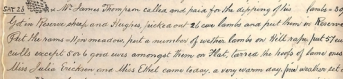 SAT 28 " Mr James Thompson called and paid for the dipping of this lambs - 30
Got in Reserve sheep and Hugies, picked out 26 ewe lambs and put them in Reserve
Put the rams in meadow, put a number of wether lambs on Hill rape, put 57 ewe
culls except 5 or 6 gave ewes amongst them on Flat, tarred the hoofs of lame ones
Miss Julia Erickson and Miss Ethel came today, a very warm day, few wether set